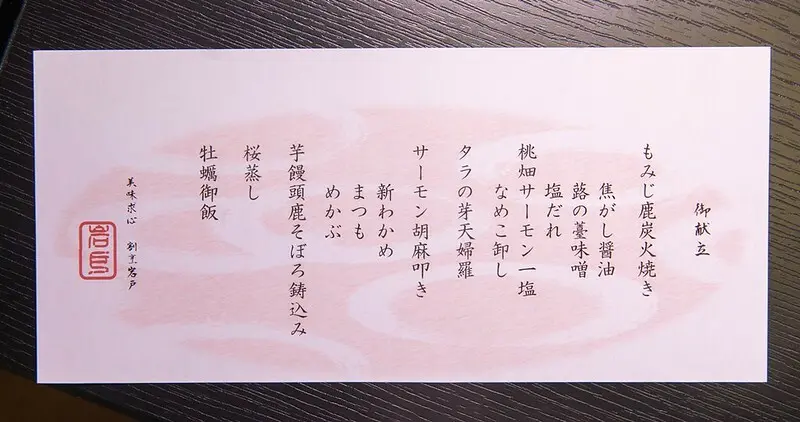 御献立
もみじ鹿炭火焼き
焦がし醤油
蕗の薹味噌
塩だれ
桃畑サーモン一塩
なめこ卸し
タラの芽天婦羅
サーモン胡麻叩き
新わかめ
まつも
めかぶ
芋饅頭鹿そぼろ鋳込み
桜蒸し
牡蠣御飯
美味求心 割烹岩戸
岩戸